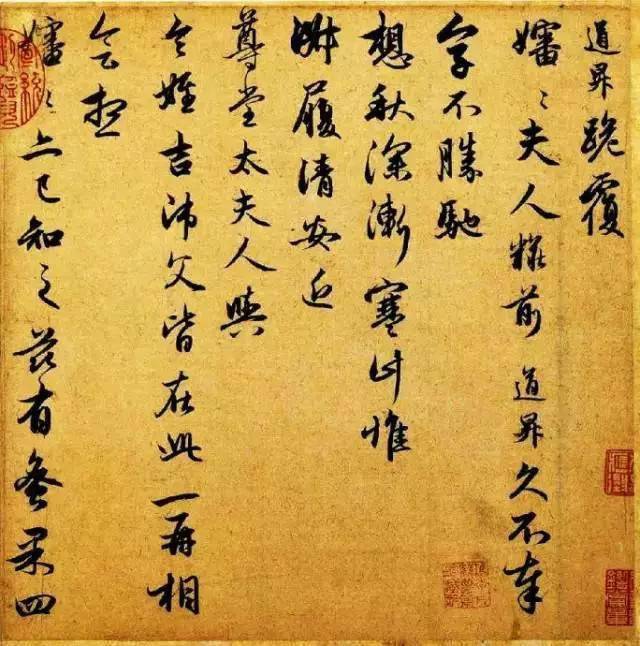 道昇跪覆
嬸〻夫人粧前 道昇久不奉
字不勝馳
想秋深漸寒計惟
淑履清安近
尊堂太夫人與
令姪吉師父皆在此一再相
會想
嬸〻亦已知之茲有蜜果四